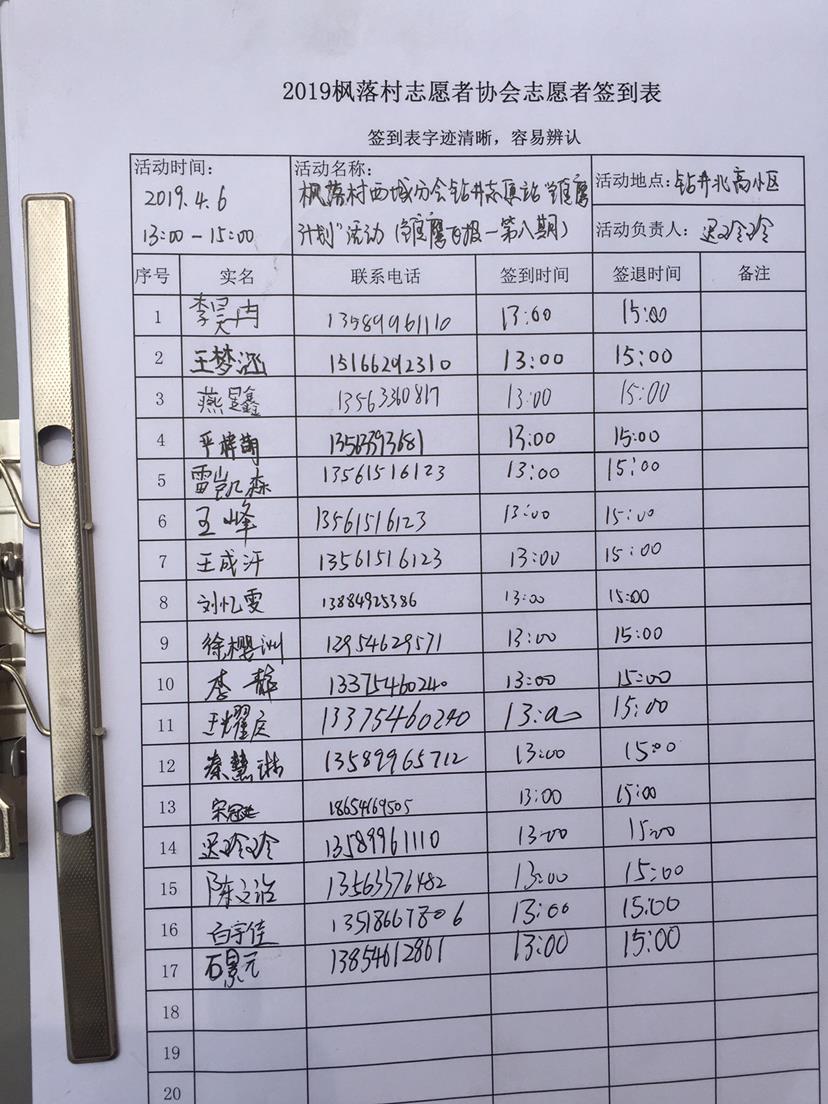 2019枫落村志愿者协会志愿者签到表
签到表字迹清晰，容易辨认
活动时间： 活动名称： 活动地点：钻井北高小区
2019.4.6 枫落村西城分会钻井志愿站“雏鹰
13:00-15:00 计划”活动（雏鹰飞报-第八期） 活动负责人：迟玲玲
序号 实名 联系电话 签到时间 签退时间 备注
1 李昊冉 13589961110 13:00 15:00
2 王梦涵 15166292310 13:00 15:00
3 燕昱鑫 13:00 15:00
4 13:00 15:00
5 雷凯森 13561516123 13:00 15:00
6 王峰 13561516123 13:00 15:00
7 王成汗 13561516123 13:00 15:00
8 刘忆雯 13884925386 13:00 15:00
9 徐樱洲 13954629571 13:00 15:00
10 李静 13375460240 13:00 15:00
11 王耀庆 13375460240 13:00 15:00
12 秦慧琳 13589965712 13:00 15:00
13 18654669505 13:00 15:00
14 迟玲玲 13589961110 13:00 15:00
15 陈文浩 13563376482 13:00 15:00
16 白宇佳 13518667806 13:00 15:00
17 石景元 13854612861 13:00 15:00
18
19
20